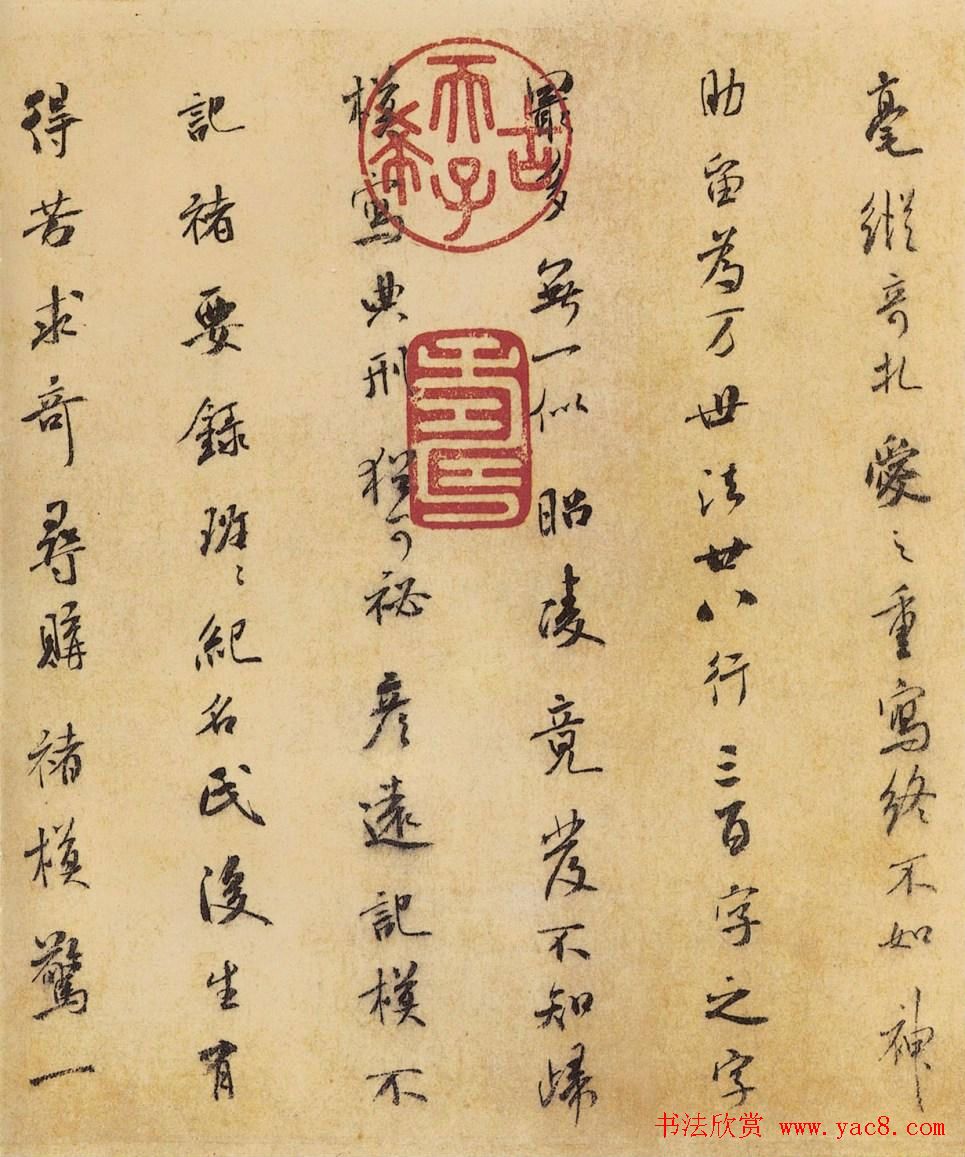 毫縱奇札愛之重寫終不如神
助留為万世法廿八行三百字之字
最多無一似昭陵竟發不知歸
模寫典刑猶可秘彥遠記模不
記褚要錄班〻紀名氏後生有
得苦求奇尋購褚模驚一
古希天子
壽
书法欣赏 www.yac8.com